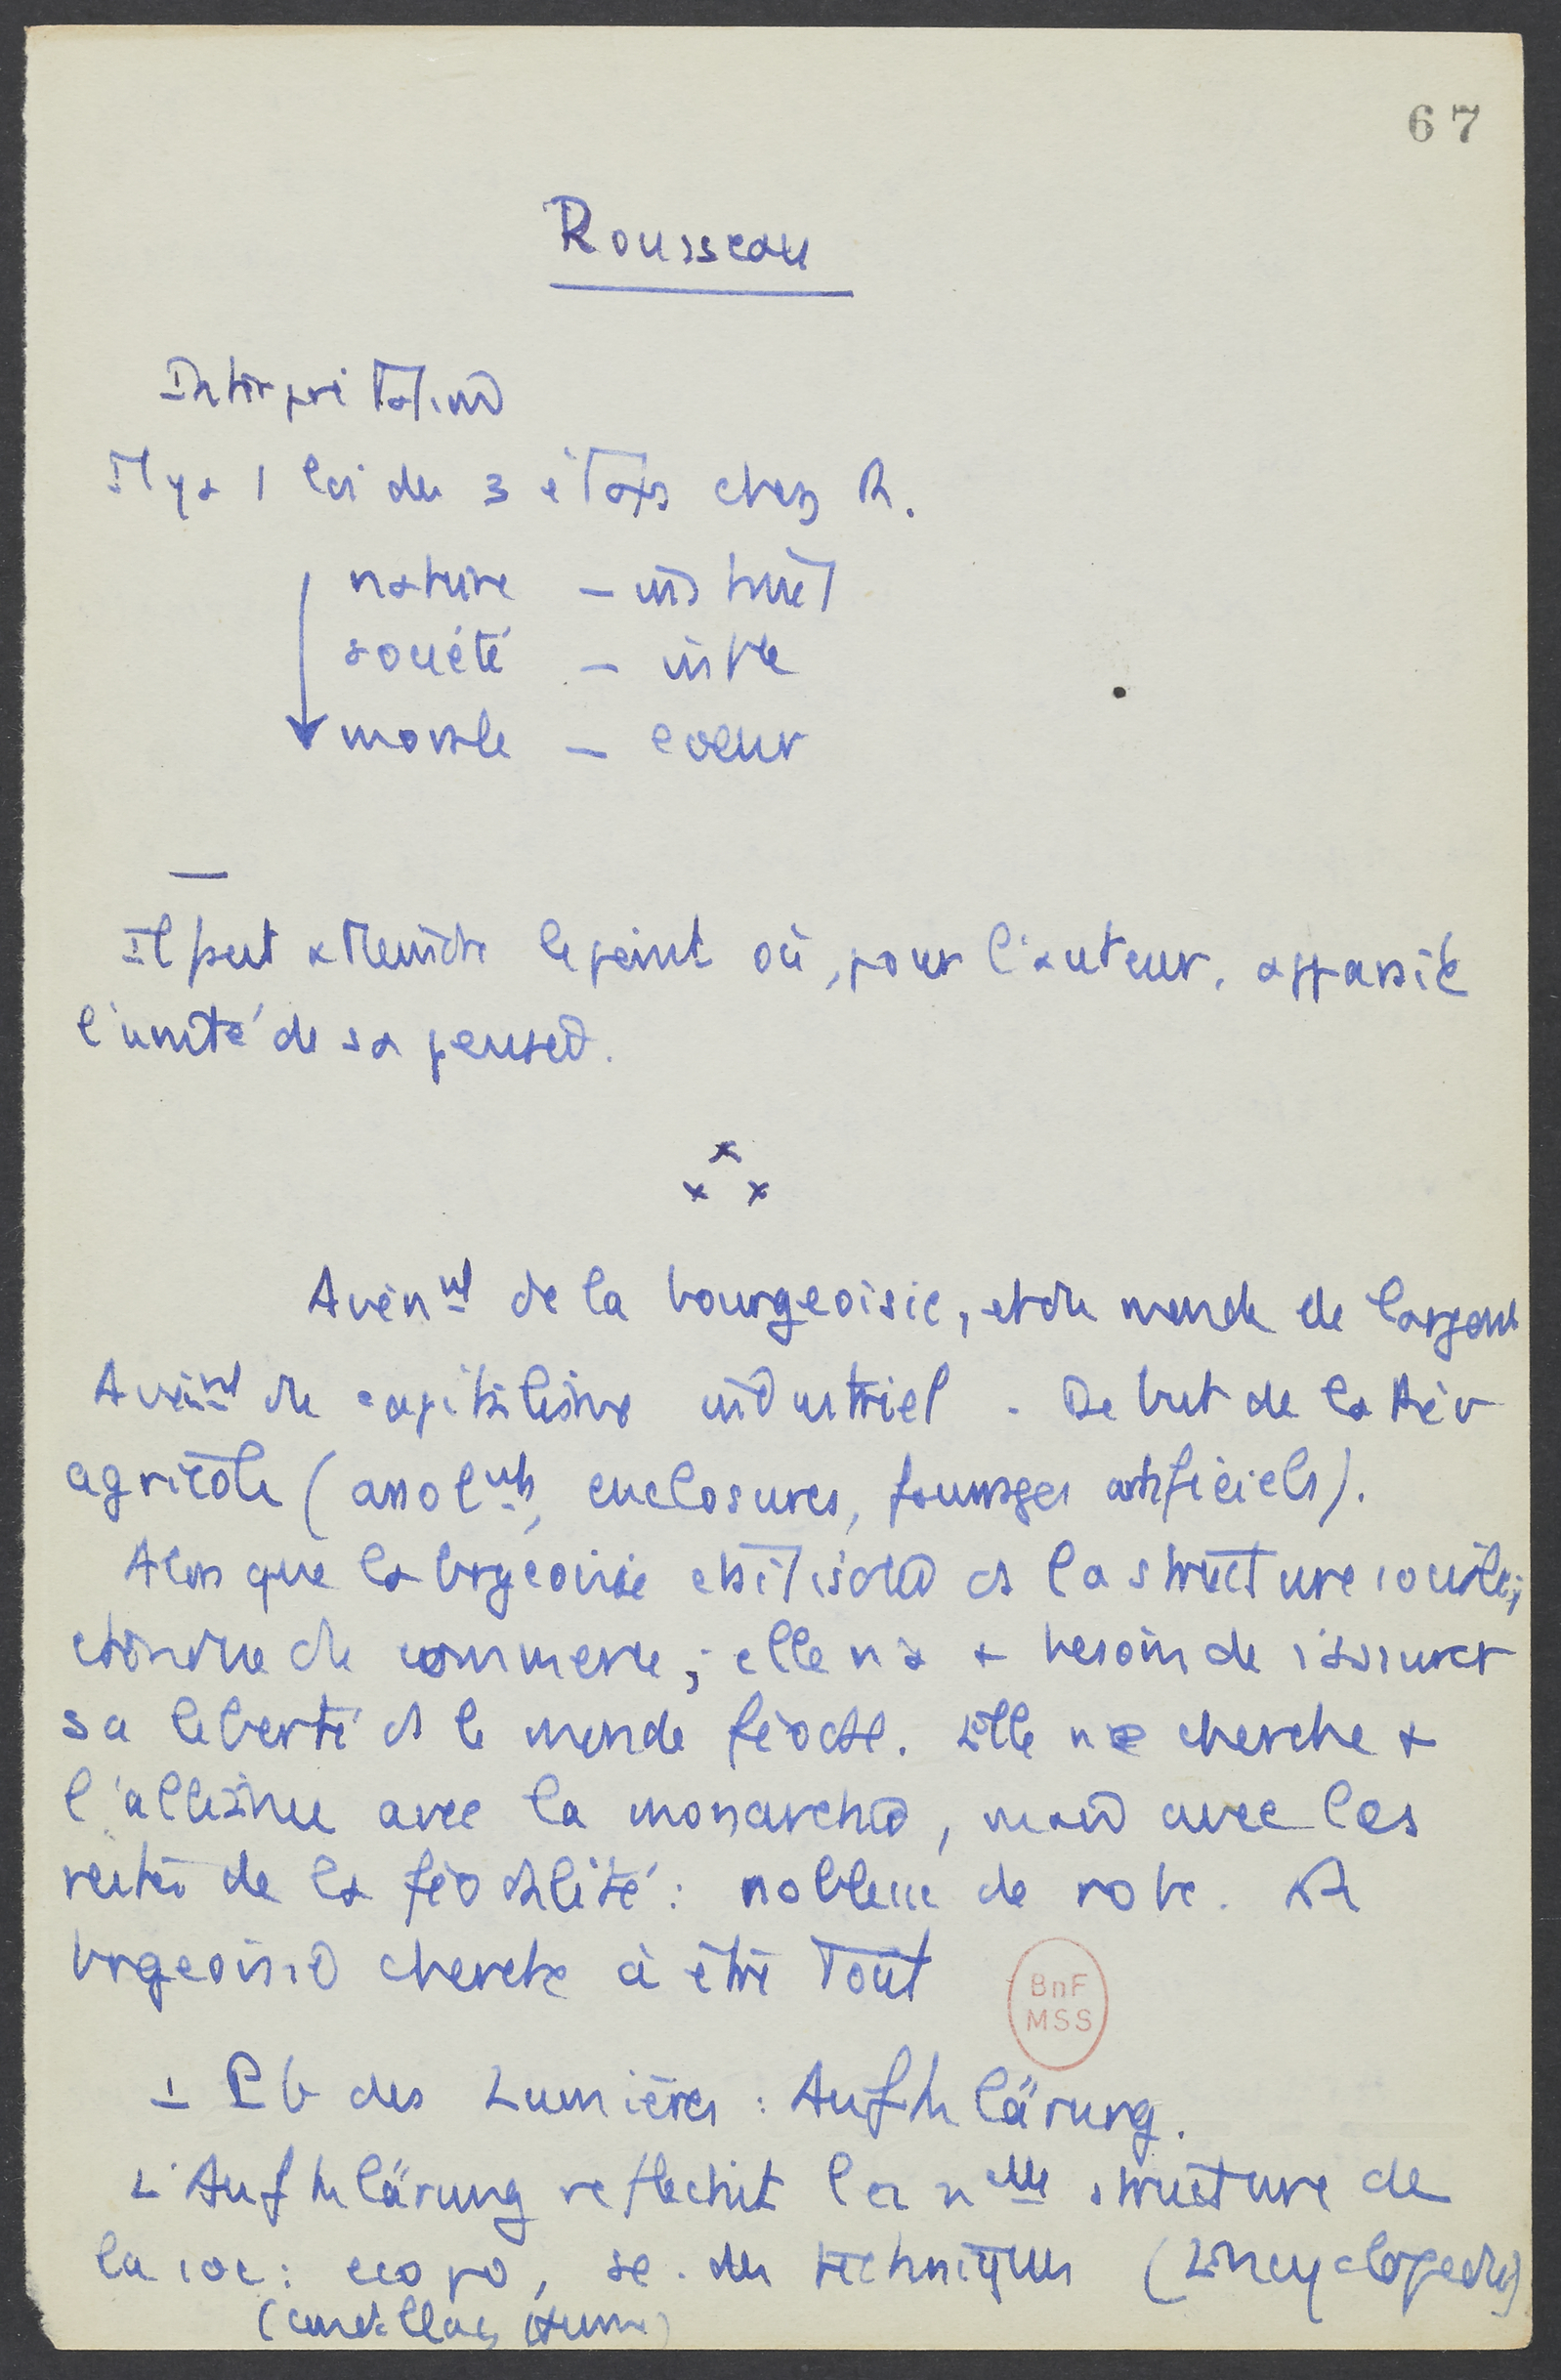 67
Rousseau
Interprétation
Il y a 1 loi des 3 états chez R.
nature – instinct
société – intce
morale – coeur
Il faut atteindre le point où, pour l'auteur, apparaît
l'unité de sa pensée.
x
x x
Avènnt de la bourgeoisie, et du monde de l'argent
Avènnt du capitalisme industriel. Debut de la Rév
agricole (assolnts, enclosures, fourrages artificiels).
Alors que la brgeoisie était isolée ds la structure sociale,
du commerce ; elle n'a + besoin de s'assurer
sa liberté ds le monde féodal. Elle ne cherche +
l'alliance avec la monarchie, mais avec les
restes de la féodalité : noblesse de robe. La
brgeoisie cherche à être Tout
BnF
MSS
1 Pb des Lumières : Aufklärung.
L'Aufklärung reflechit la nelle structure de
la soc : eco po, sc. des techniques (Encyclopedie)
(Condillac, Hume)